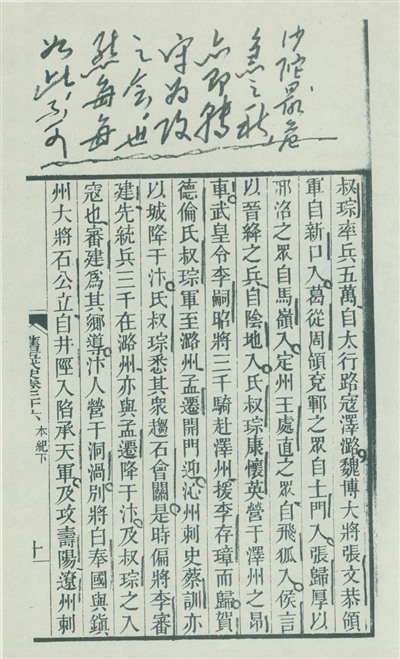 沙陀最危
急之秋
亦即轉
守为攻
之会世
態每每
如此不可
叔琮率兵五萬自太行路寇澤潞魏博大將張文恭領
軍自新口入葛從周領兗鄆之眾自土門入張歸厚以
邢洺之眾自馬嶺入定州王處直之眾自飛狐入侯言
以晉絳之兵自陰地入氏叔琮康懷英營于澤州之昂
車武皇令李嗣昭將三千騎赴澤州援李存璋而歸賀
德倫氏叔琮軍至潞州孟遷開門迎沁州刺史蔡訓亦
以城降于汴氏叔琮悉其眾趨石會關是時偏將李審
建先統兵三千在潞州亦與孟遷降于汴及叔琮之入
寇也審建為其鄉導汴人營于洞渦別將白奉國與鎮
州大將石公立自井陘入陷承天軍及攻壽陽遼州刺
舊五代史卷二十六 本紀下 十一